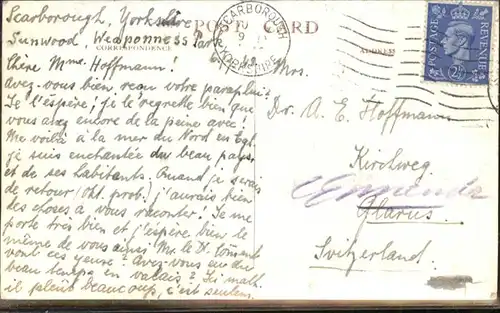 Scarborough, Yorkshire
Sunwood Weaponness Park
POST CARD
CORRESPONDENCE
ADDRESS
SCARBOROUGH
YORKSHIRE
POSTAGE REVENUE
2½
Chère Mme. Hoffmann!
Avez-vous bien reçu votre parapluie?
Je l'espère; je le regrette bien que
vous avez encore de la peine avec!
Me voilà à la mer du Nord en Egl.
je suis enchantée du beau pays,
et de ses habitants. Quand je serais
de retour (Okt. prob.) j'aurais bien
des choses à vous raconter! Je me
porte très bien et j'espère bien le
même de vous ainsi Mr. le Dr. Comment
vont ces yeux? Avez-vous eu du
beau temps en Valais? Ici malh.
il pleut beaucoup, c'est seulem.
Mrs.
Dr. A. E. Hoffmann
Kirchweg
Glarus.
Switzerland.